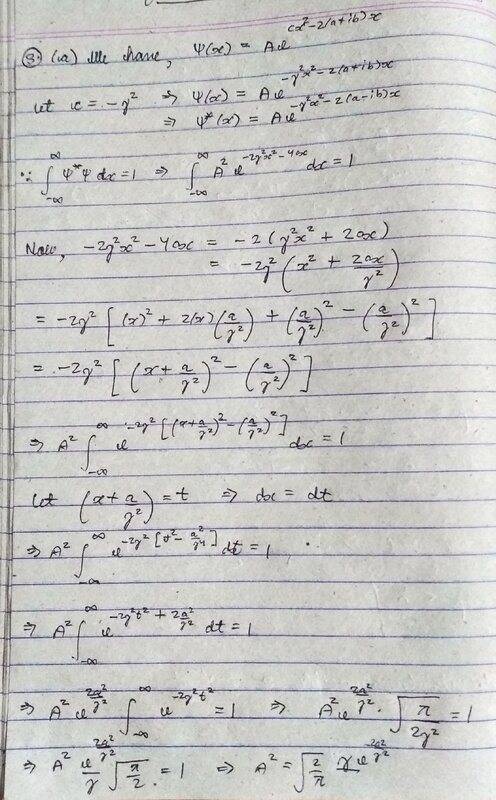 3. (a) We have, Ψ(x) = A e^{cx²-2(a+ib)x}
Let c = -γ² ⇒ Ψ(x) = A e^{-γ²x²-2(a+ib)x}
⇒ Ψ*(x) = A e^{-γ²x²-2(a-ib)x}
∵ ∫_{-∞}^{∞} Ψ*Ψ dx = 1 ⇒ ∫_{-∞}^{∞} A² e^{-2γ²x²-4ax} dx = 1
Now, -2γ²x² - 4ax = -2(γ²x² + 2ax)
= -2γ² (x² + 2ax/γ²)
= -2γ² [(x)² + 2(x)(a/γ²) + (a/γ²)² - (a/γ²)²]
= -2γ² [(x + a/γ²)² - (a/γ²)²]
⇒ A² ∫_{-∞}^{∞} e^{-2γ²[(x+a/γ²)² - (a/γ²)²]} dx = 1
Let (x + a/γ²) = t ⇒ dx = dt
⇒ A² ∫_{-∞}^{∞} e^{-2γ²[t² - a²/γ⁴]} dt = 1
⇒ A² ∫_{-∞}^{∞} e^{-2γ²t² + 2a²/γ²} dt = 1
⇒ A² e^{2a²/γ²} ∫_{-∞}^{∞} e^{-2γ²t²} = 1 ⇒ A² e^{2a²/γ²} · √(π/2γ²) = 1
⇒ A² e^{2a²/γ²}/γ √(π/2) = 1 ⇒ A² = √(2/π) γ e^{-2a²/γ²}